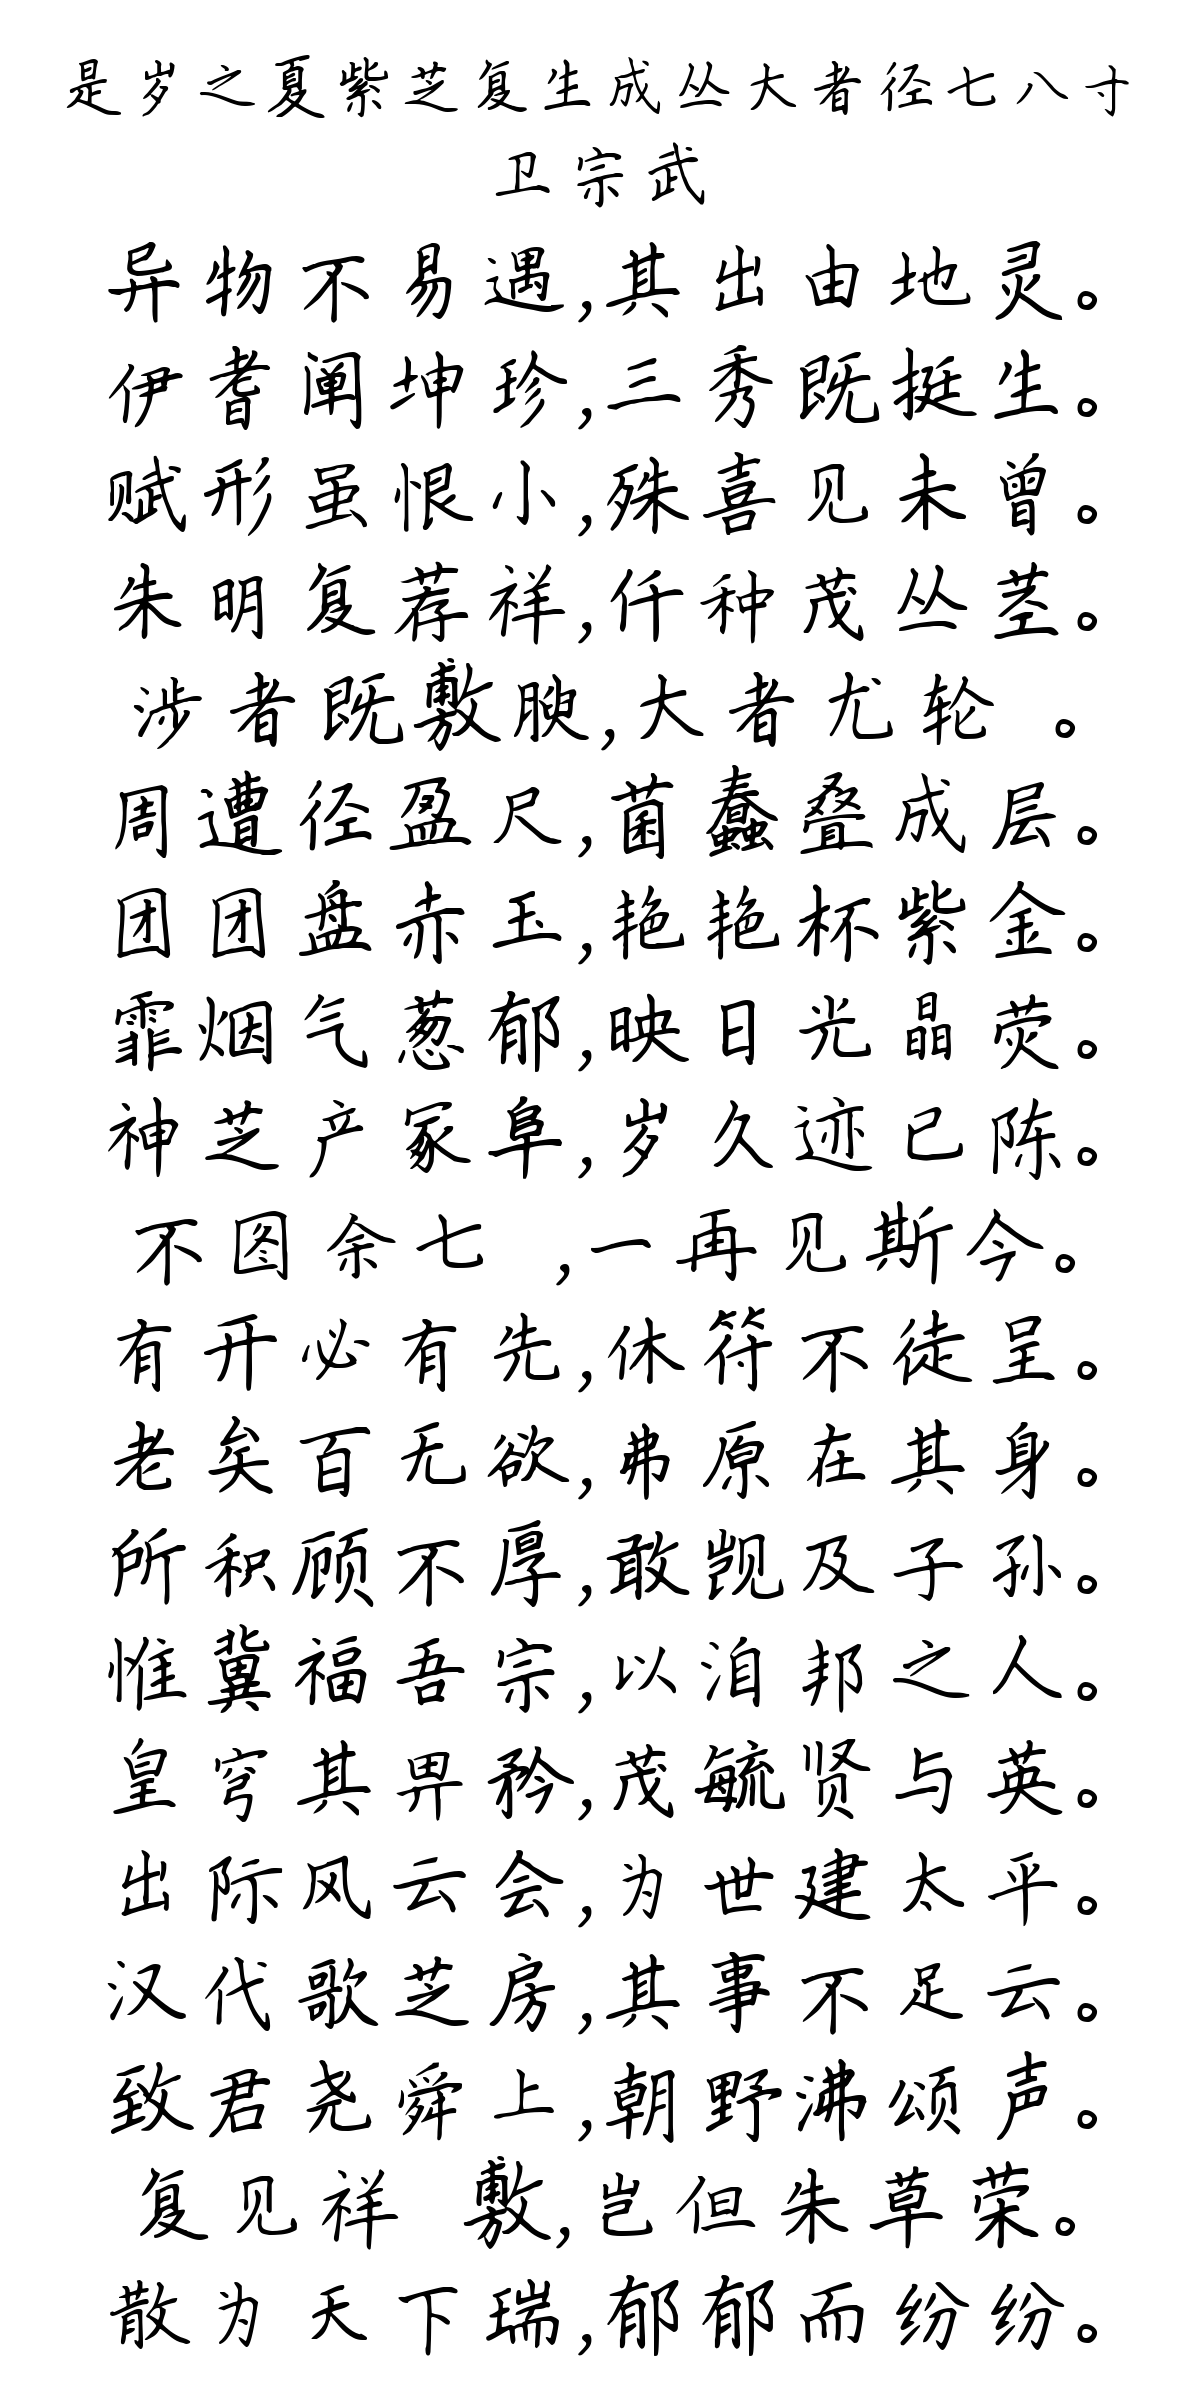 是岁之夏紫芝复生成丛大者径七八寸
卫宗武
异物不易遇,其出由地灵。
伊耆阐坤珍,三秀既挺生。
赋形虽恨小,殊喜见未曾。
朱明复荐祥,仟种茂丛茎。
涉者既敷腴,大者尤轮 。
周遭径盈尺,菌蠢叠成层。
团团盘赤玉,艳艳杯紫金。
霏烟气葱郁,映日光晶荧。
神芝产冢阜,岁久迹已陈。
不图余七 ,一再见斯今。
有开必有先,休符不徒呈。
老矣百无欲,弗原在其身。
所积顾不厚,敢觊及子孙。
惟冀福吾宗,以洎邦之人。
皇穹其畀矜,茂毓贤与英。
出际风云会,为世建太平。
汉代歌芝房,其事不足云。
致君尧舜上,朝野沸颂声。
复见祥 敷,岂但朱草荣。
散为天下瑞,郁郁而纷纷。